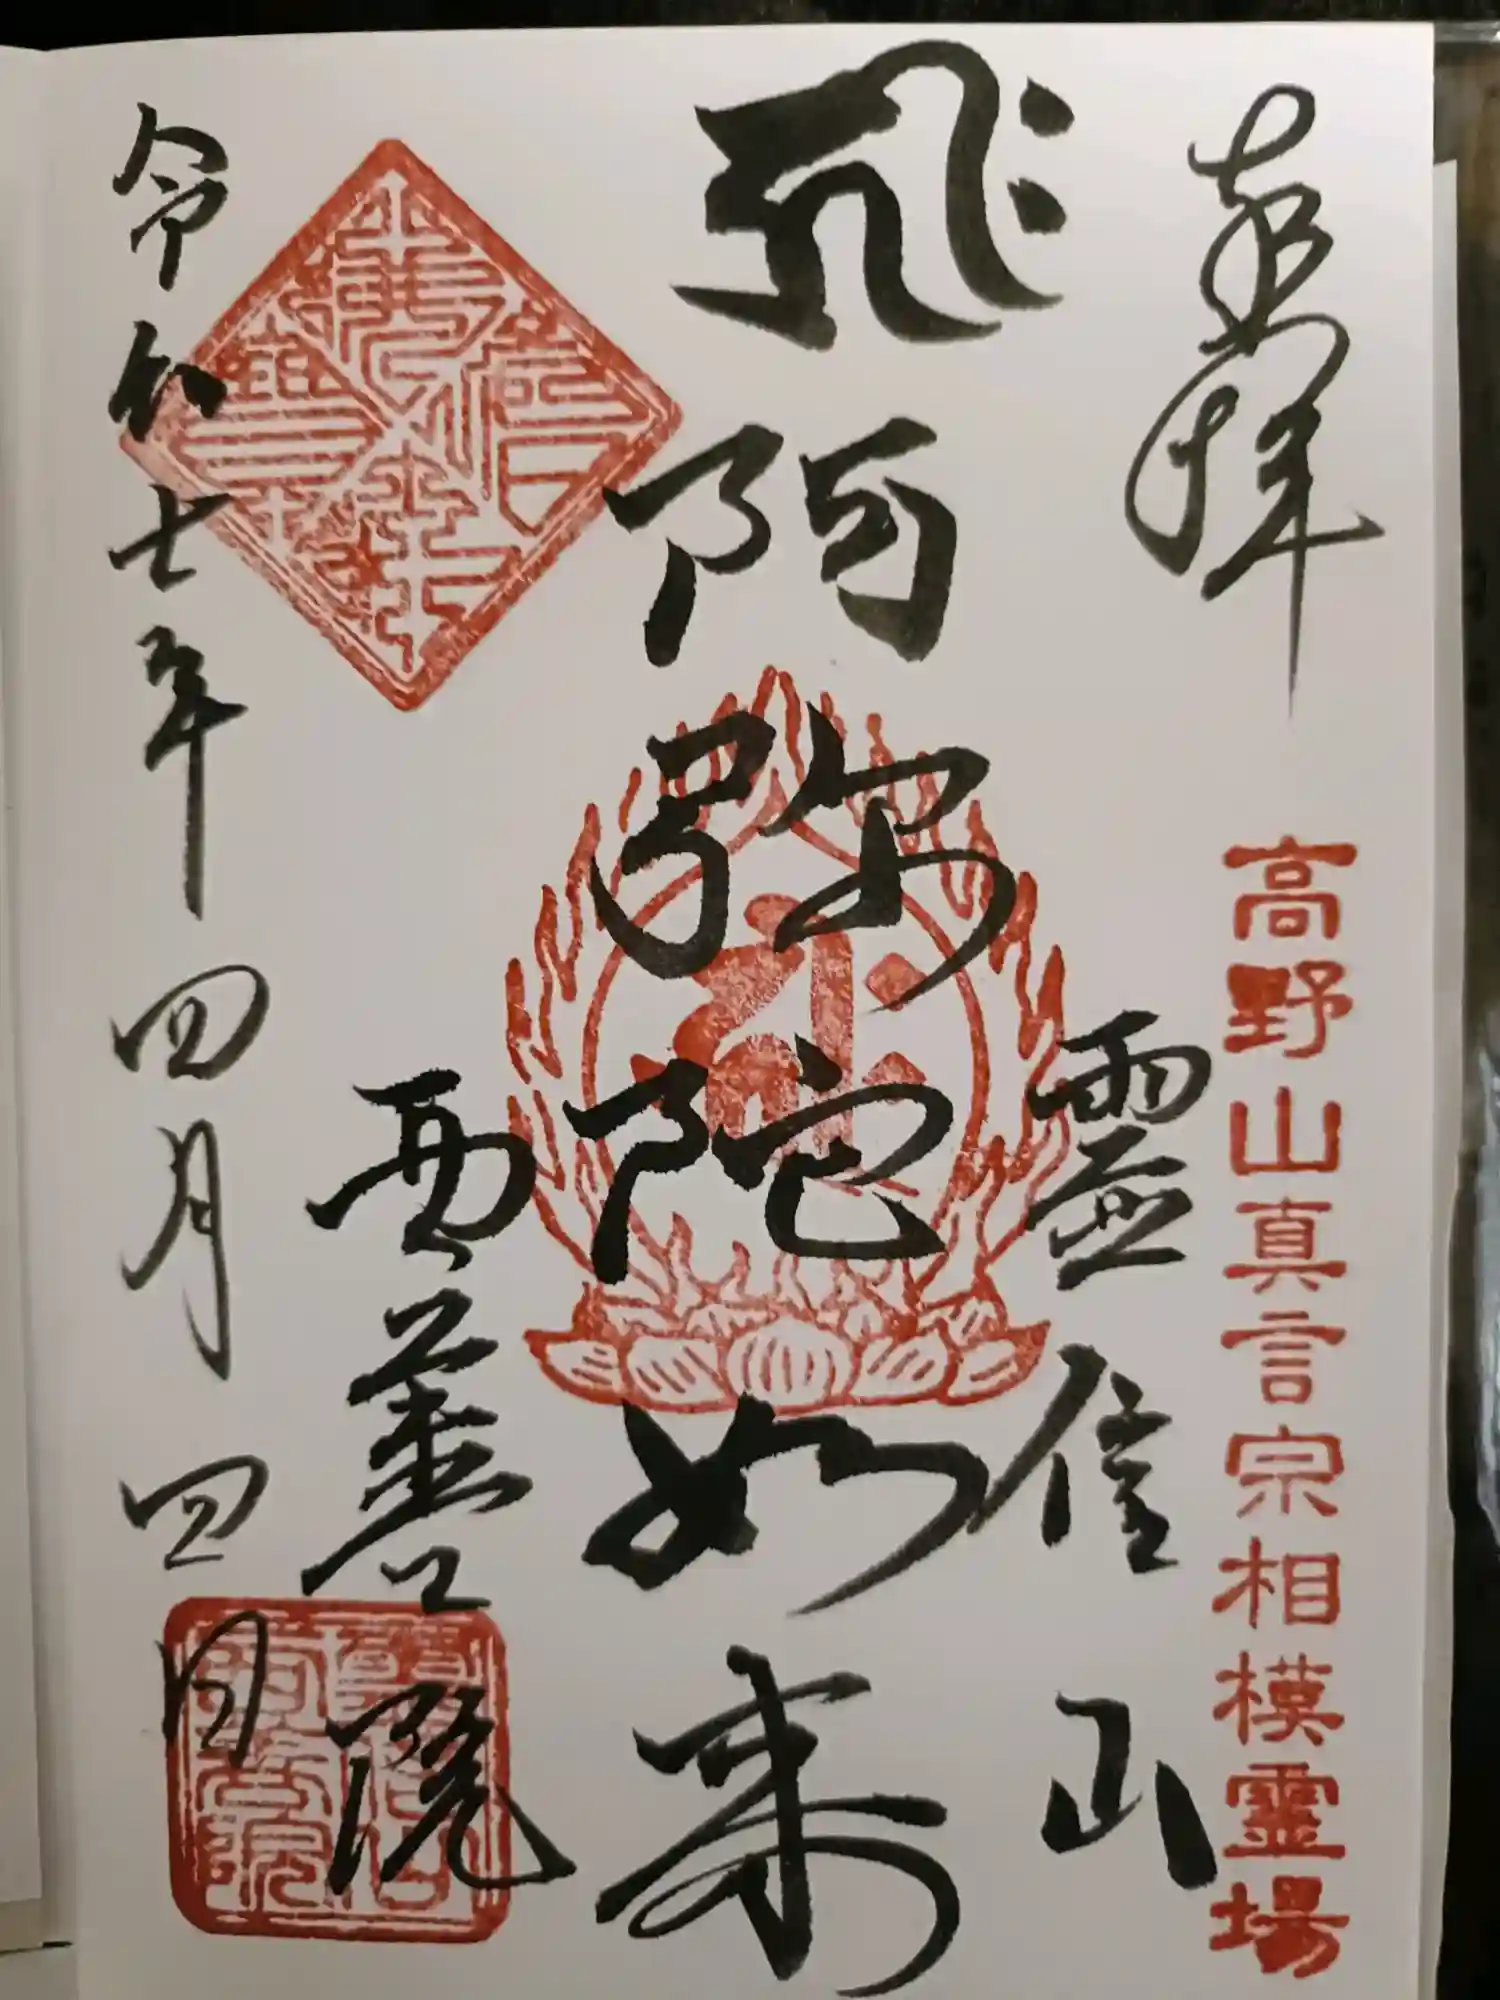 奉拝
高野山真言宗相模霊場
霊信山
阿弥陀如来
西善院
令和七年四月四日